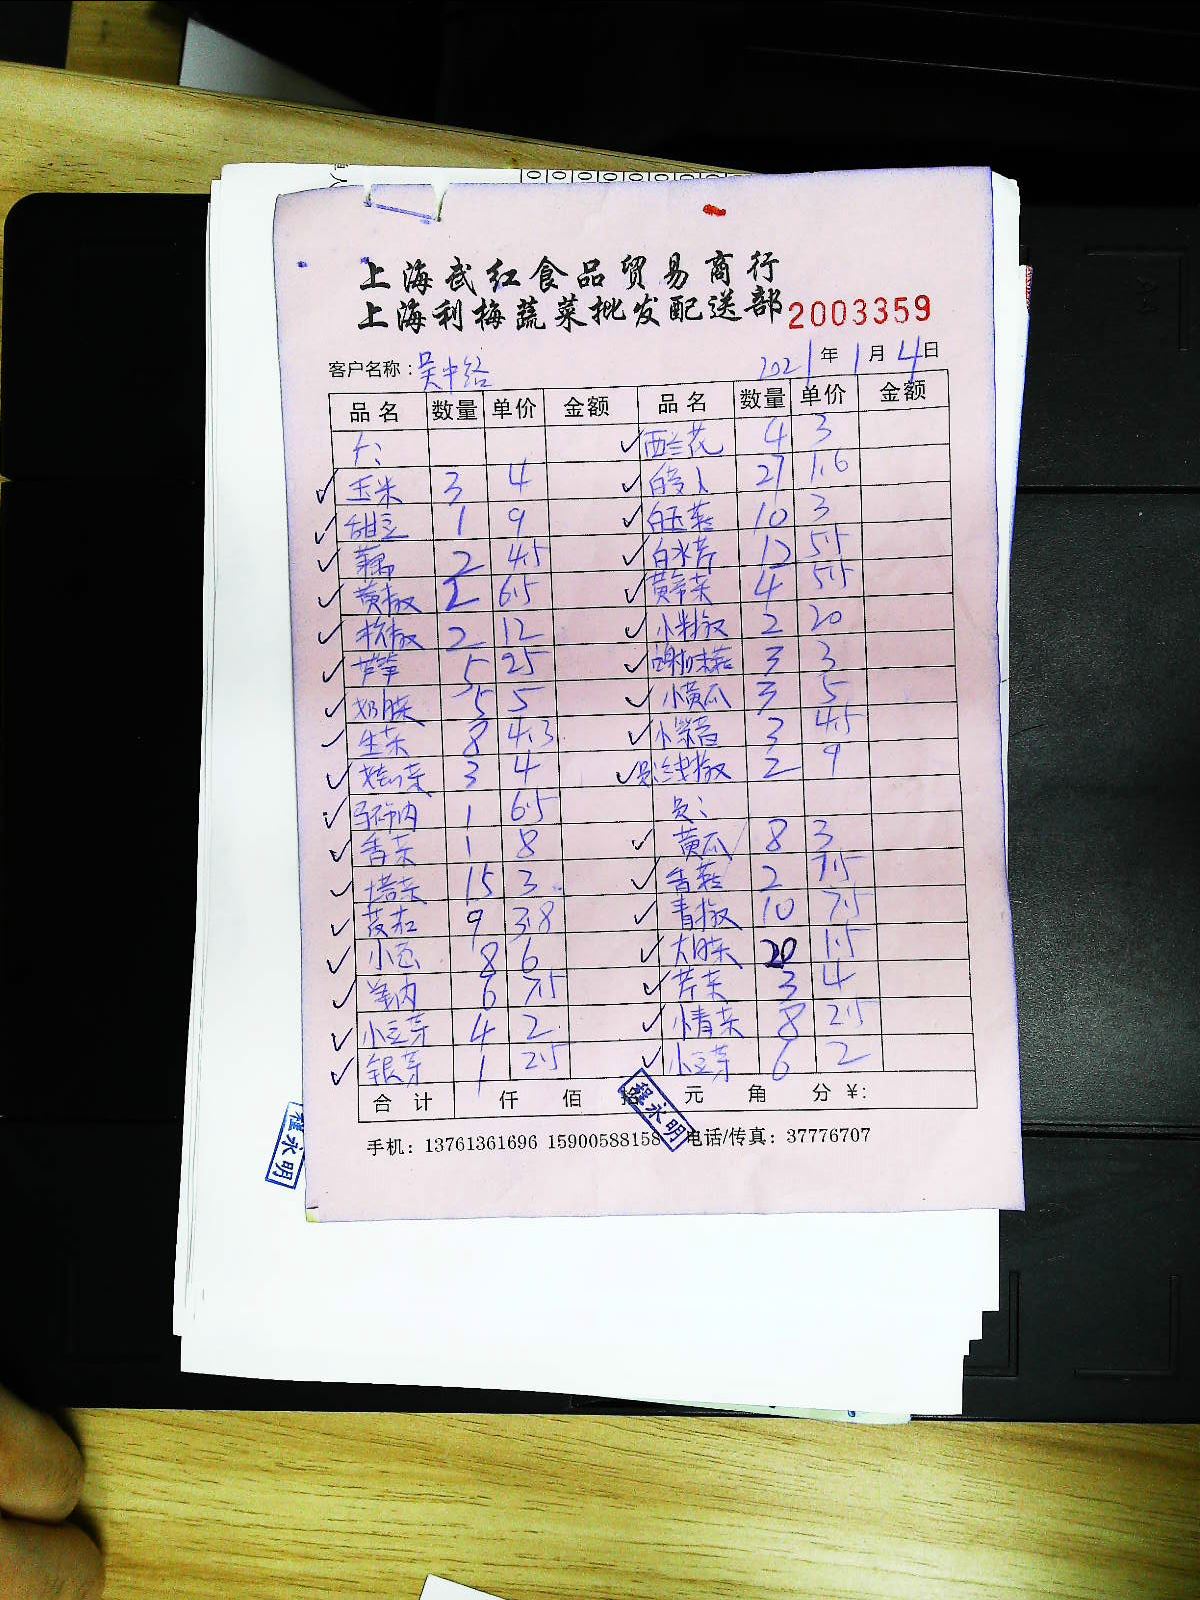 上海武红食品贸易商行
上海利梅蔬菜批发配送部 2003359
客户名称：吴中路 2021年1月4日
品名 数量 单价 金额 品名 数量 单价 金额
西兰花 4 3
玉米 3 4 27 1.6
甜豆 1 9 白玉菇 10 3
藕 2 4.5 白水芹 12 5.5
黄椒 2 6.5 4 5.5
杭椒 2 12 小米椒 2 20
芦笋 5 25 3 3
奶白菜 5 5 小黄瓜 3 5
生菜 8 4.3 3 4.5
3 4 2 9
1 6.5
香菜 1 8 黄瓜 8 3
塔菜 15 3 香菇 2 7.5
茭白 9 3.8 青椒 10 7.5
小葱 8 6 大白菜 20 1.5
6 7.5 芹菜 3 4
小豆芽 4 2 小青菜 8 2.5
银芽 1 2.5 小豆芽 6 2
合计 仟 佰 拾 元 角 分 ¥:
程永明
手机：13761361696 15900588158 电话/传真：37776707
程永明